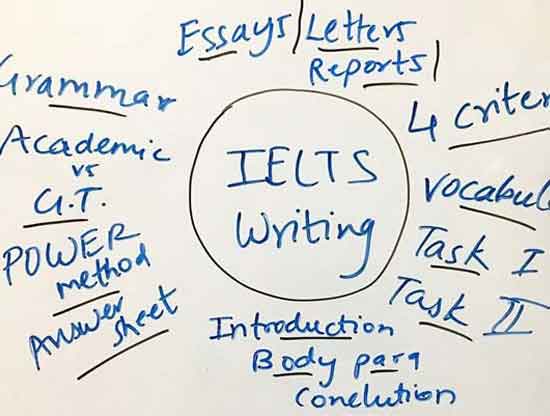 Essays / Letters
Reports /
Grammar
Academic
vs
G.T.
POWER
method
Answer
sheet
IELTS
Writing
4 Criter
Vocabul
Task I
Task II
Introduction
Body para
Conclution